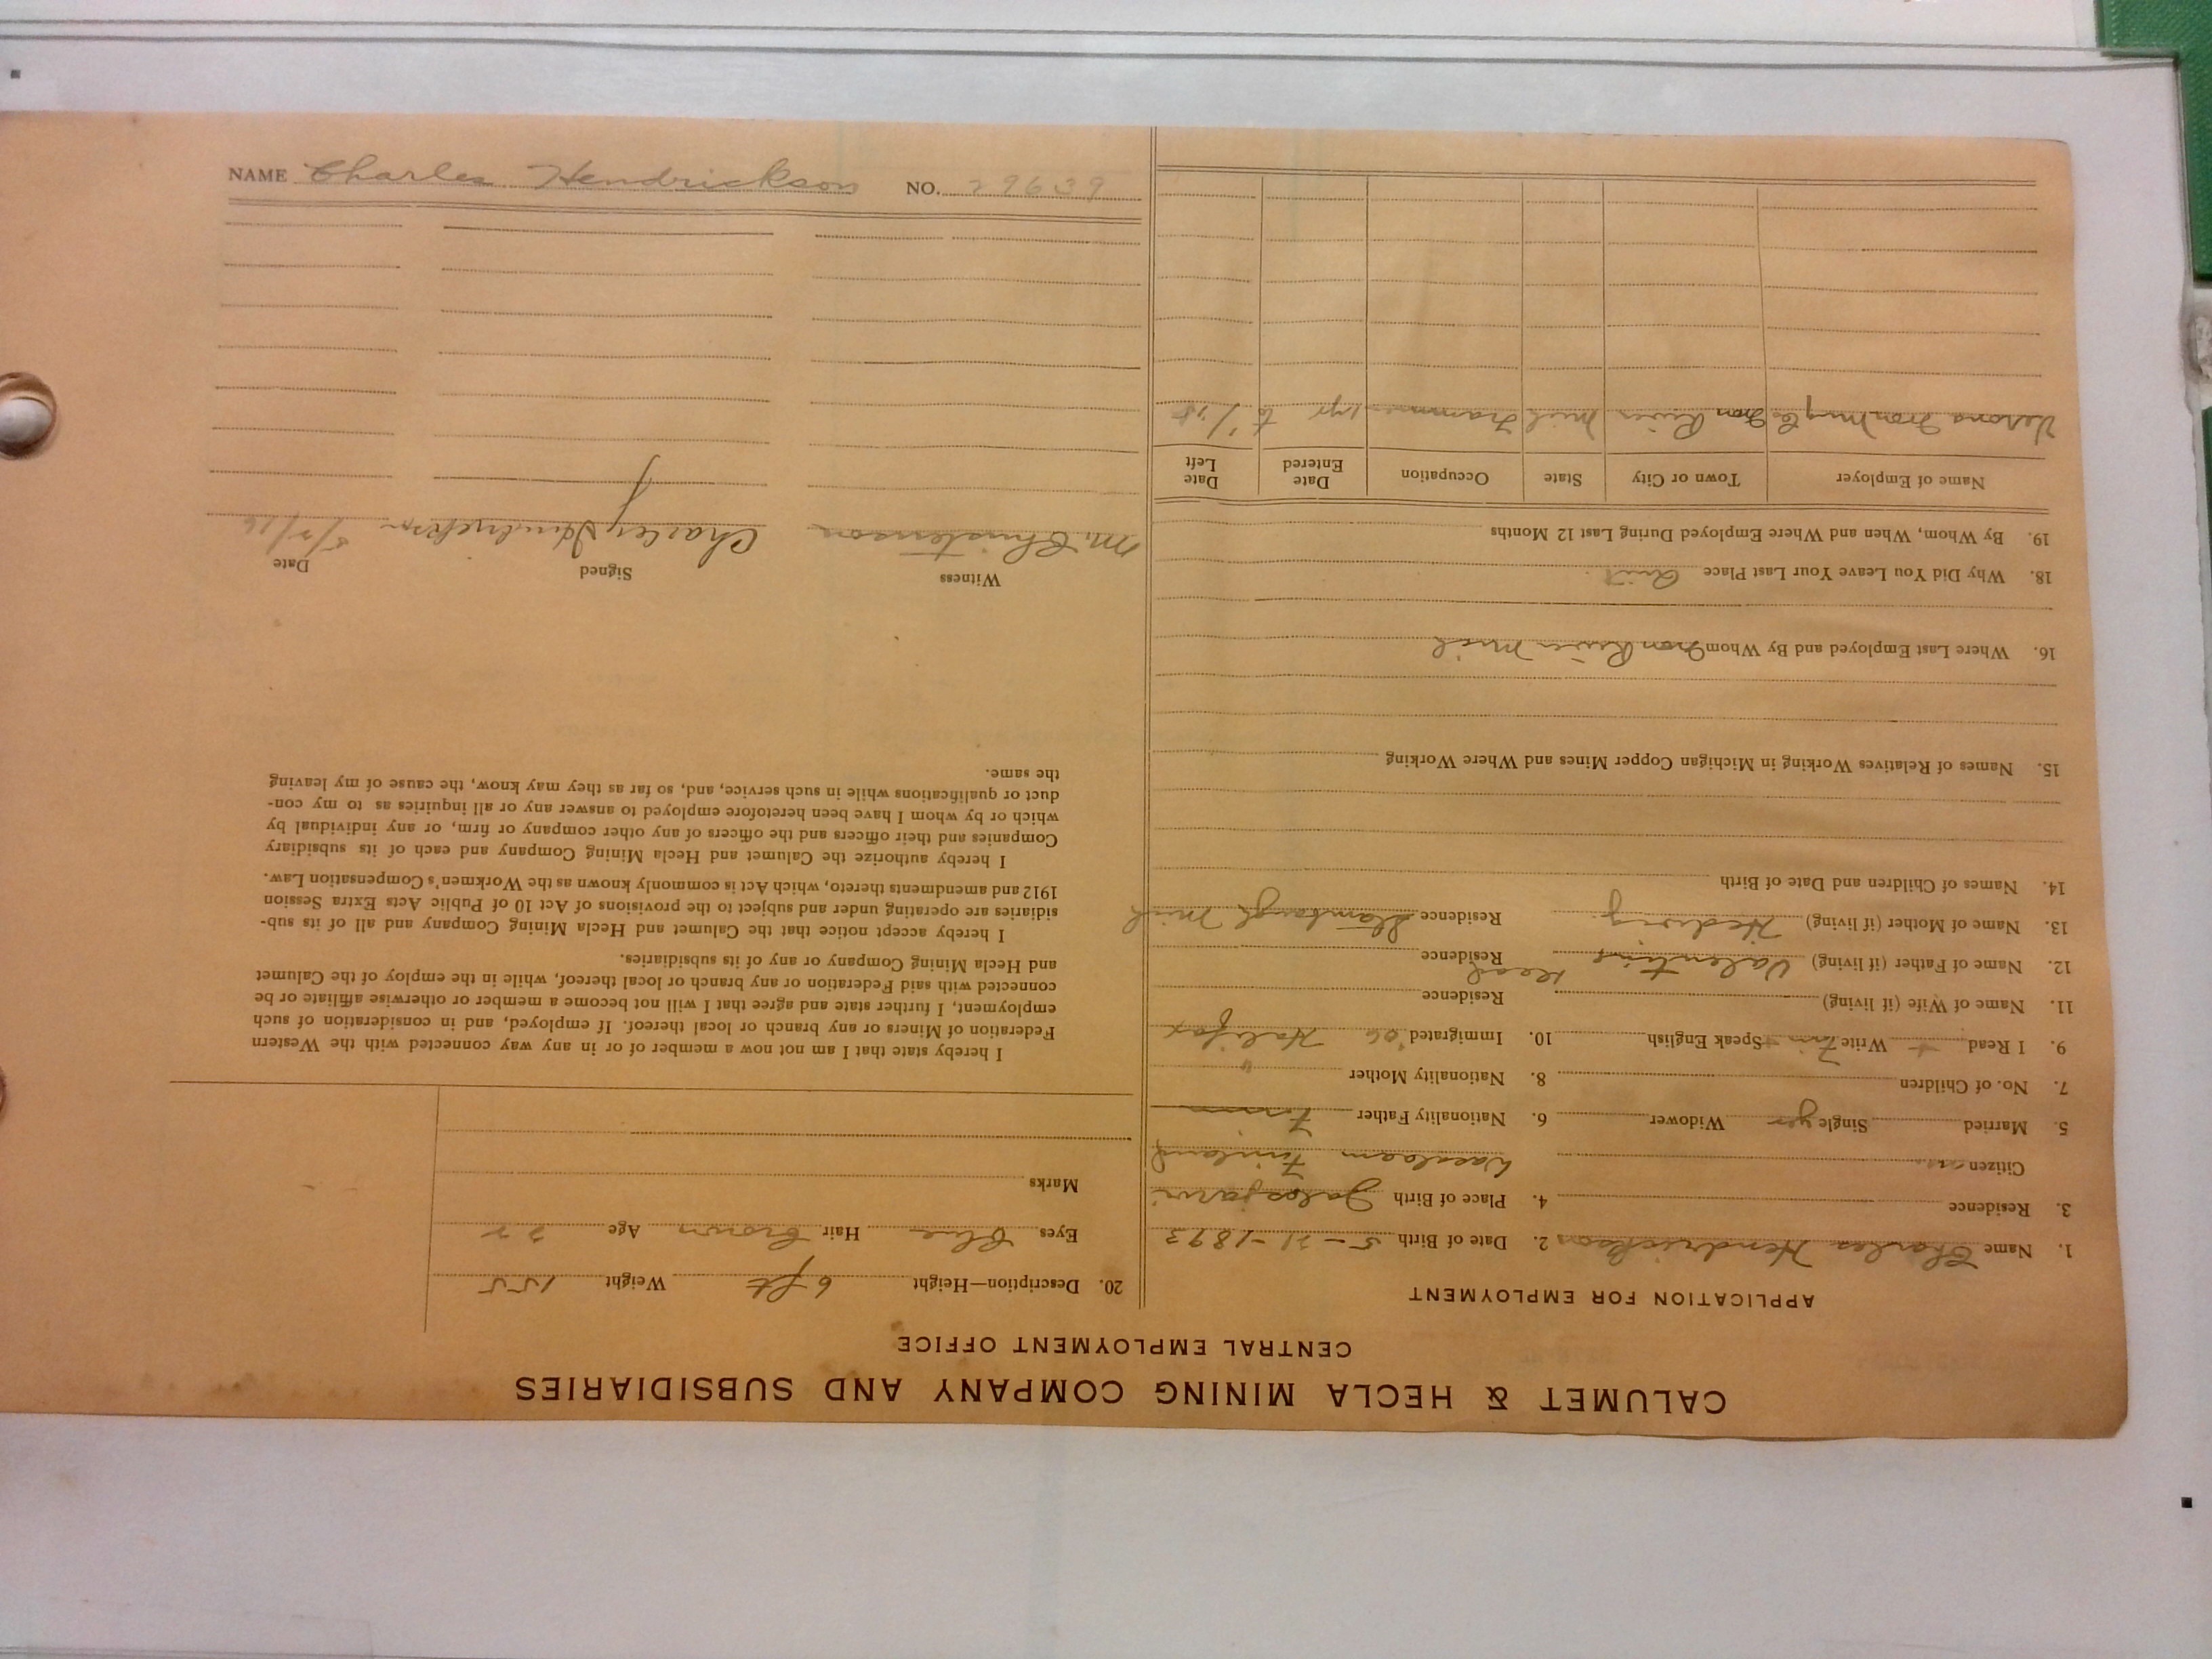 CALUMET & HECLA MINING COMPANY AND SUBSIDIARIES
CENTRAL EMPLOYMENT OFFICE
APPLICATION FOR EMPLOYMENT
1. Name Charles Hendrickson 2. Date of Birth 5-21-1893
3. Residence 4. Place of Birth Jalasjarvi
Citizen Finland
5. Married Single yes Widower 6. Nationality Father Finn
7. No. of Children 8. Nationality Mother "
9. I Read + Write Finn + Speak English 10. Immigrated 06 Halifax
11. Name of Wife (if living) Residence
12. Name of Father (if living) Valentine Dead Residence
13. Name of Mother (if living) Hedvig Residence Stambaugh Mich
14. Names of Children and Date of Birth
15. Names of Relatives Working in Michigan Copper Mines and Where Working
16. Where Last Employed and By Whom Iron River Mich
18. Why Did You Leave Your Last Place Quit
19. By Whom, When and Where Employed During Last 12 Months
Name of Employer Town or City State Occupation Date Entered Date Left
Verona Iron Mng Co Iron River Mich Trammer 1 yr to
20. Description—Height 6 ft Weight 155
Eyes Blue Hair Brown Age 22
Marks
I hereby state that I am not now a member of or in any way connected with the Western
Federation of Miners or any branch or local thereof. If employed, and in consideration of such
employment, I further state and agree that I will not become a member or otherwise affiliate or be
connected with said Federation or any branch or local thereof, while in the employ of the Calumet
and Hecla Mining Company or any of its subsidiaries.
I hereby accept notice that the Calumet and Hecla Mining Company and all of its sub-
sidiaries are operating under and subject to the provisions of Act 10 of Public Acts Extra Session
1912 and amendments thereto, which Act is commonly known as the Workmen's Compensation Law.
I hereby authorize the Calumet and Hecla Mining Company and each of its subsidiary
Companies and their officers and the officers of any other company or firm, or any individual by
which or by whom I have been heretofore employed to answer any or all inquiries as to my con-
duct or qualifications while in such service, and, so far as they may know, the cause of my leaving
the same.
Witness Signed Date
M. Christenson Charley Hendrickson
NAME Charles Hendrickson NO. 29639